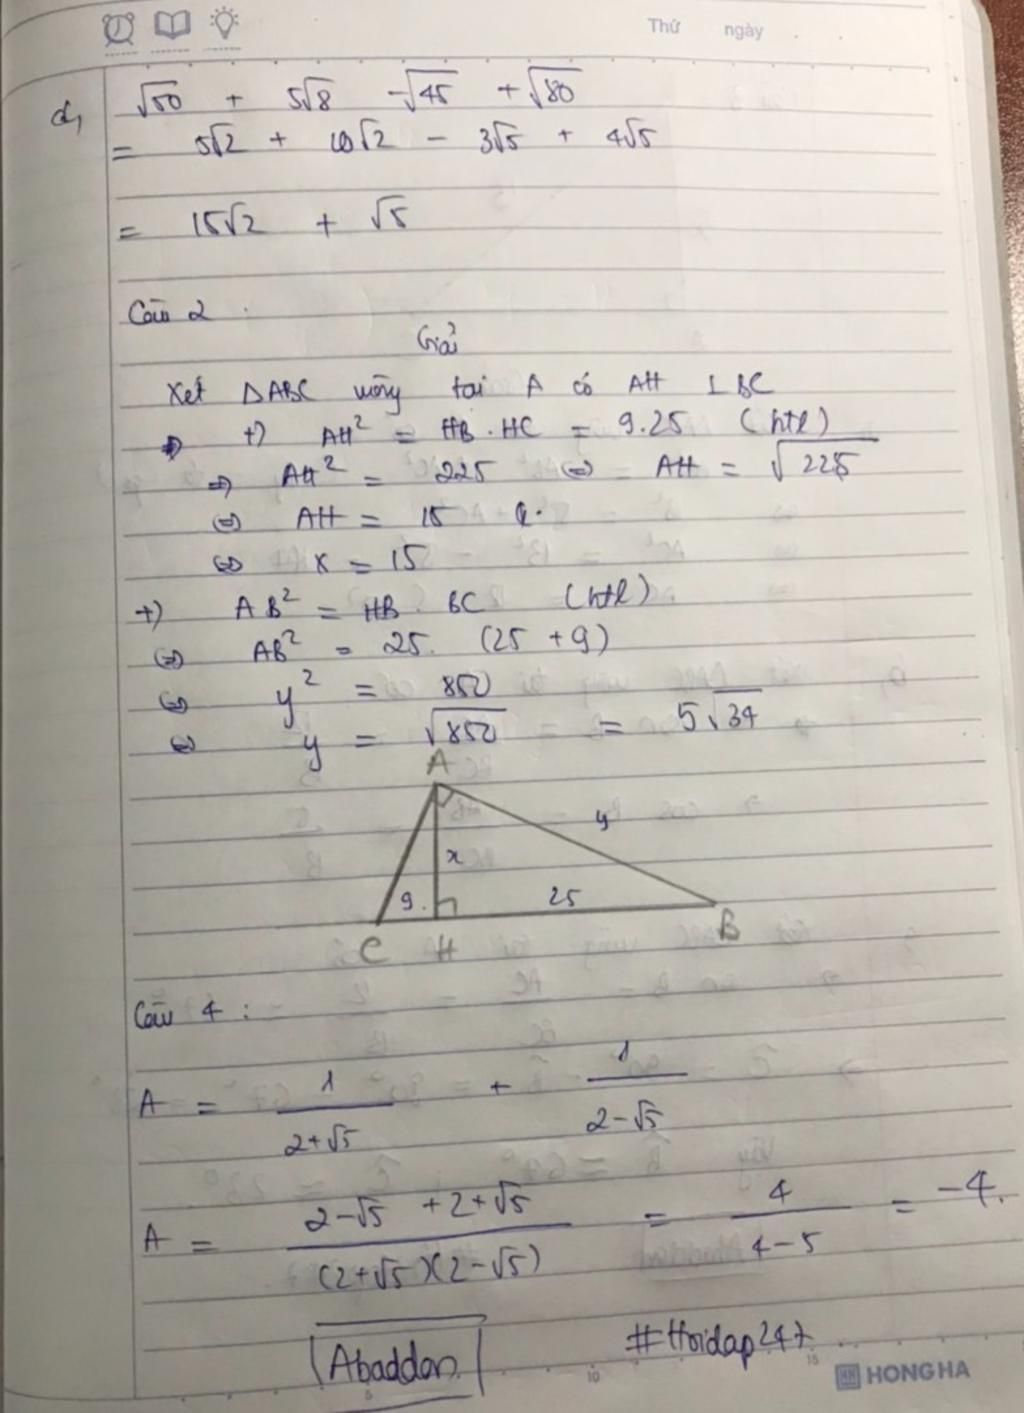 Thứ ngày
d, √50 + 5√8 -√45 + √80
= 5√2 + 10√2 - 3√5 + 4√5
= 15√2 + √5
Câu 2
Giải
Xét ΔABC vuông tại A có AH ⊥ BC
⇒ +) AH² = HB . HC = 9.25 (htl)
⇒ AH² = 225 ⇔ AH = √225
⇔ AH = 15
⇔ x = 15
+) AB² = HB . BC (htl)
⇔ AB² = 25. (25 + 9)
⇔ y² = 850
⇔ y = √850 = 5√34
A
y
x
9 25
C H B
Câu 4 :
A = 1/(2+√5) + 1/(2-√5)
A = (2-√5 + 2+√5)/((2+√5)(2-√5)) = 4/(4-5) = -4.
Abaddon #Hoidap247
5 10 15
HONG HA